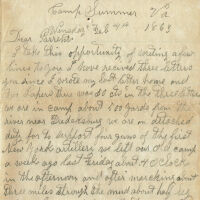 Camp Summer Va
Wensday Feb 4th 1863
Dear Parents
I take this opportunity of writing a few
lines to you I have received three letters
you since I wrote my last letter home and
the papers there was 25 cts in the three letter
we are in camp about 100 yards from the
river near we are on
duty for to support four guns of the first
New York artillery we left our old camp
a week ago last Friday about 4 O'clock
in the afternoon and after marching about
three miles through the mud about